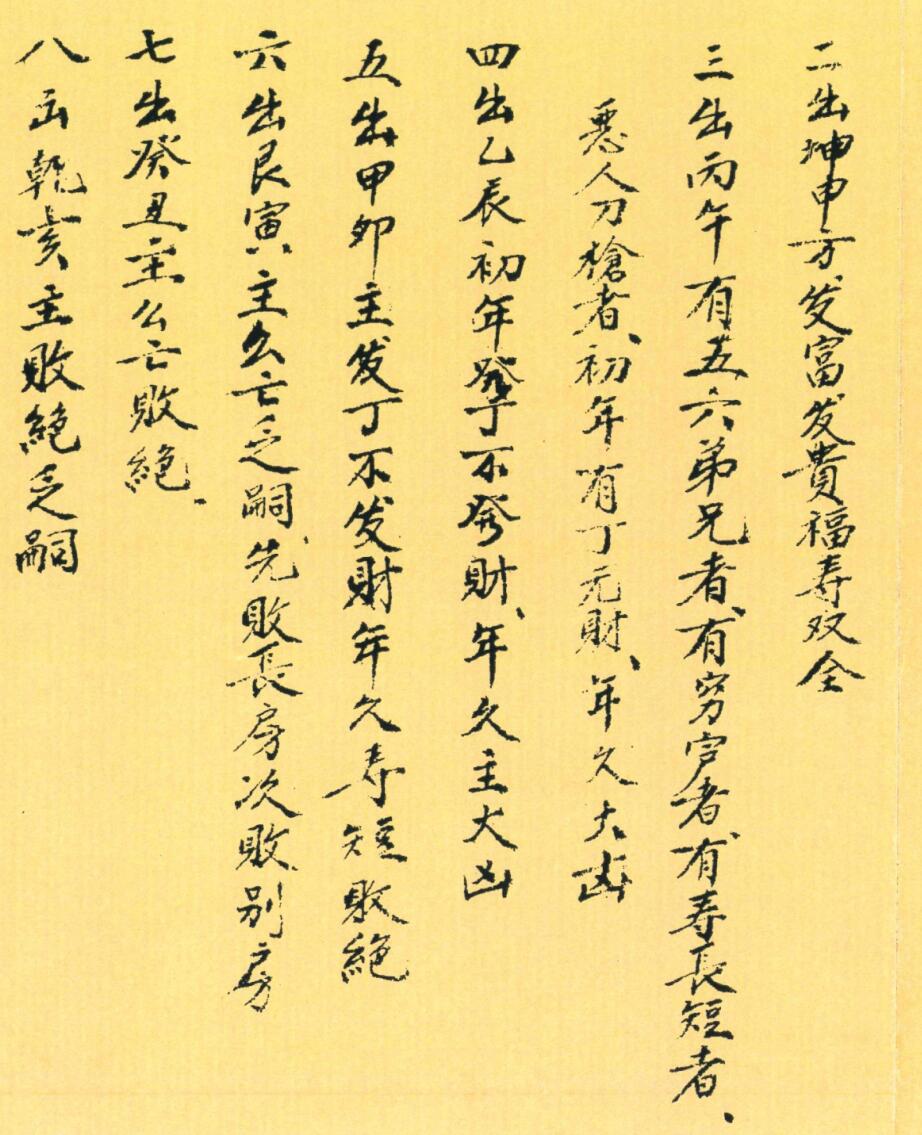 二出坤申方发富发貴福寿双全
三出丙午有五六弟兄者、有穷官者、有寿長短者、
恶人刀槍者、初年有丁元財、年久大凶
四出乙辰初年發丁不發財、年久主大凶
五出甲卯主发丁不发財年久寿短敗絕
六出艮寅主么亡乏嗣、先敗長房次敗别房
七出癸丑主么亡敗絕.
八出乾亥主敗絕乏嗣